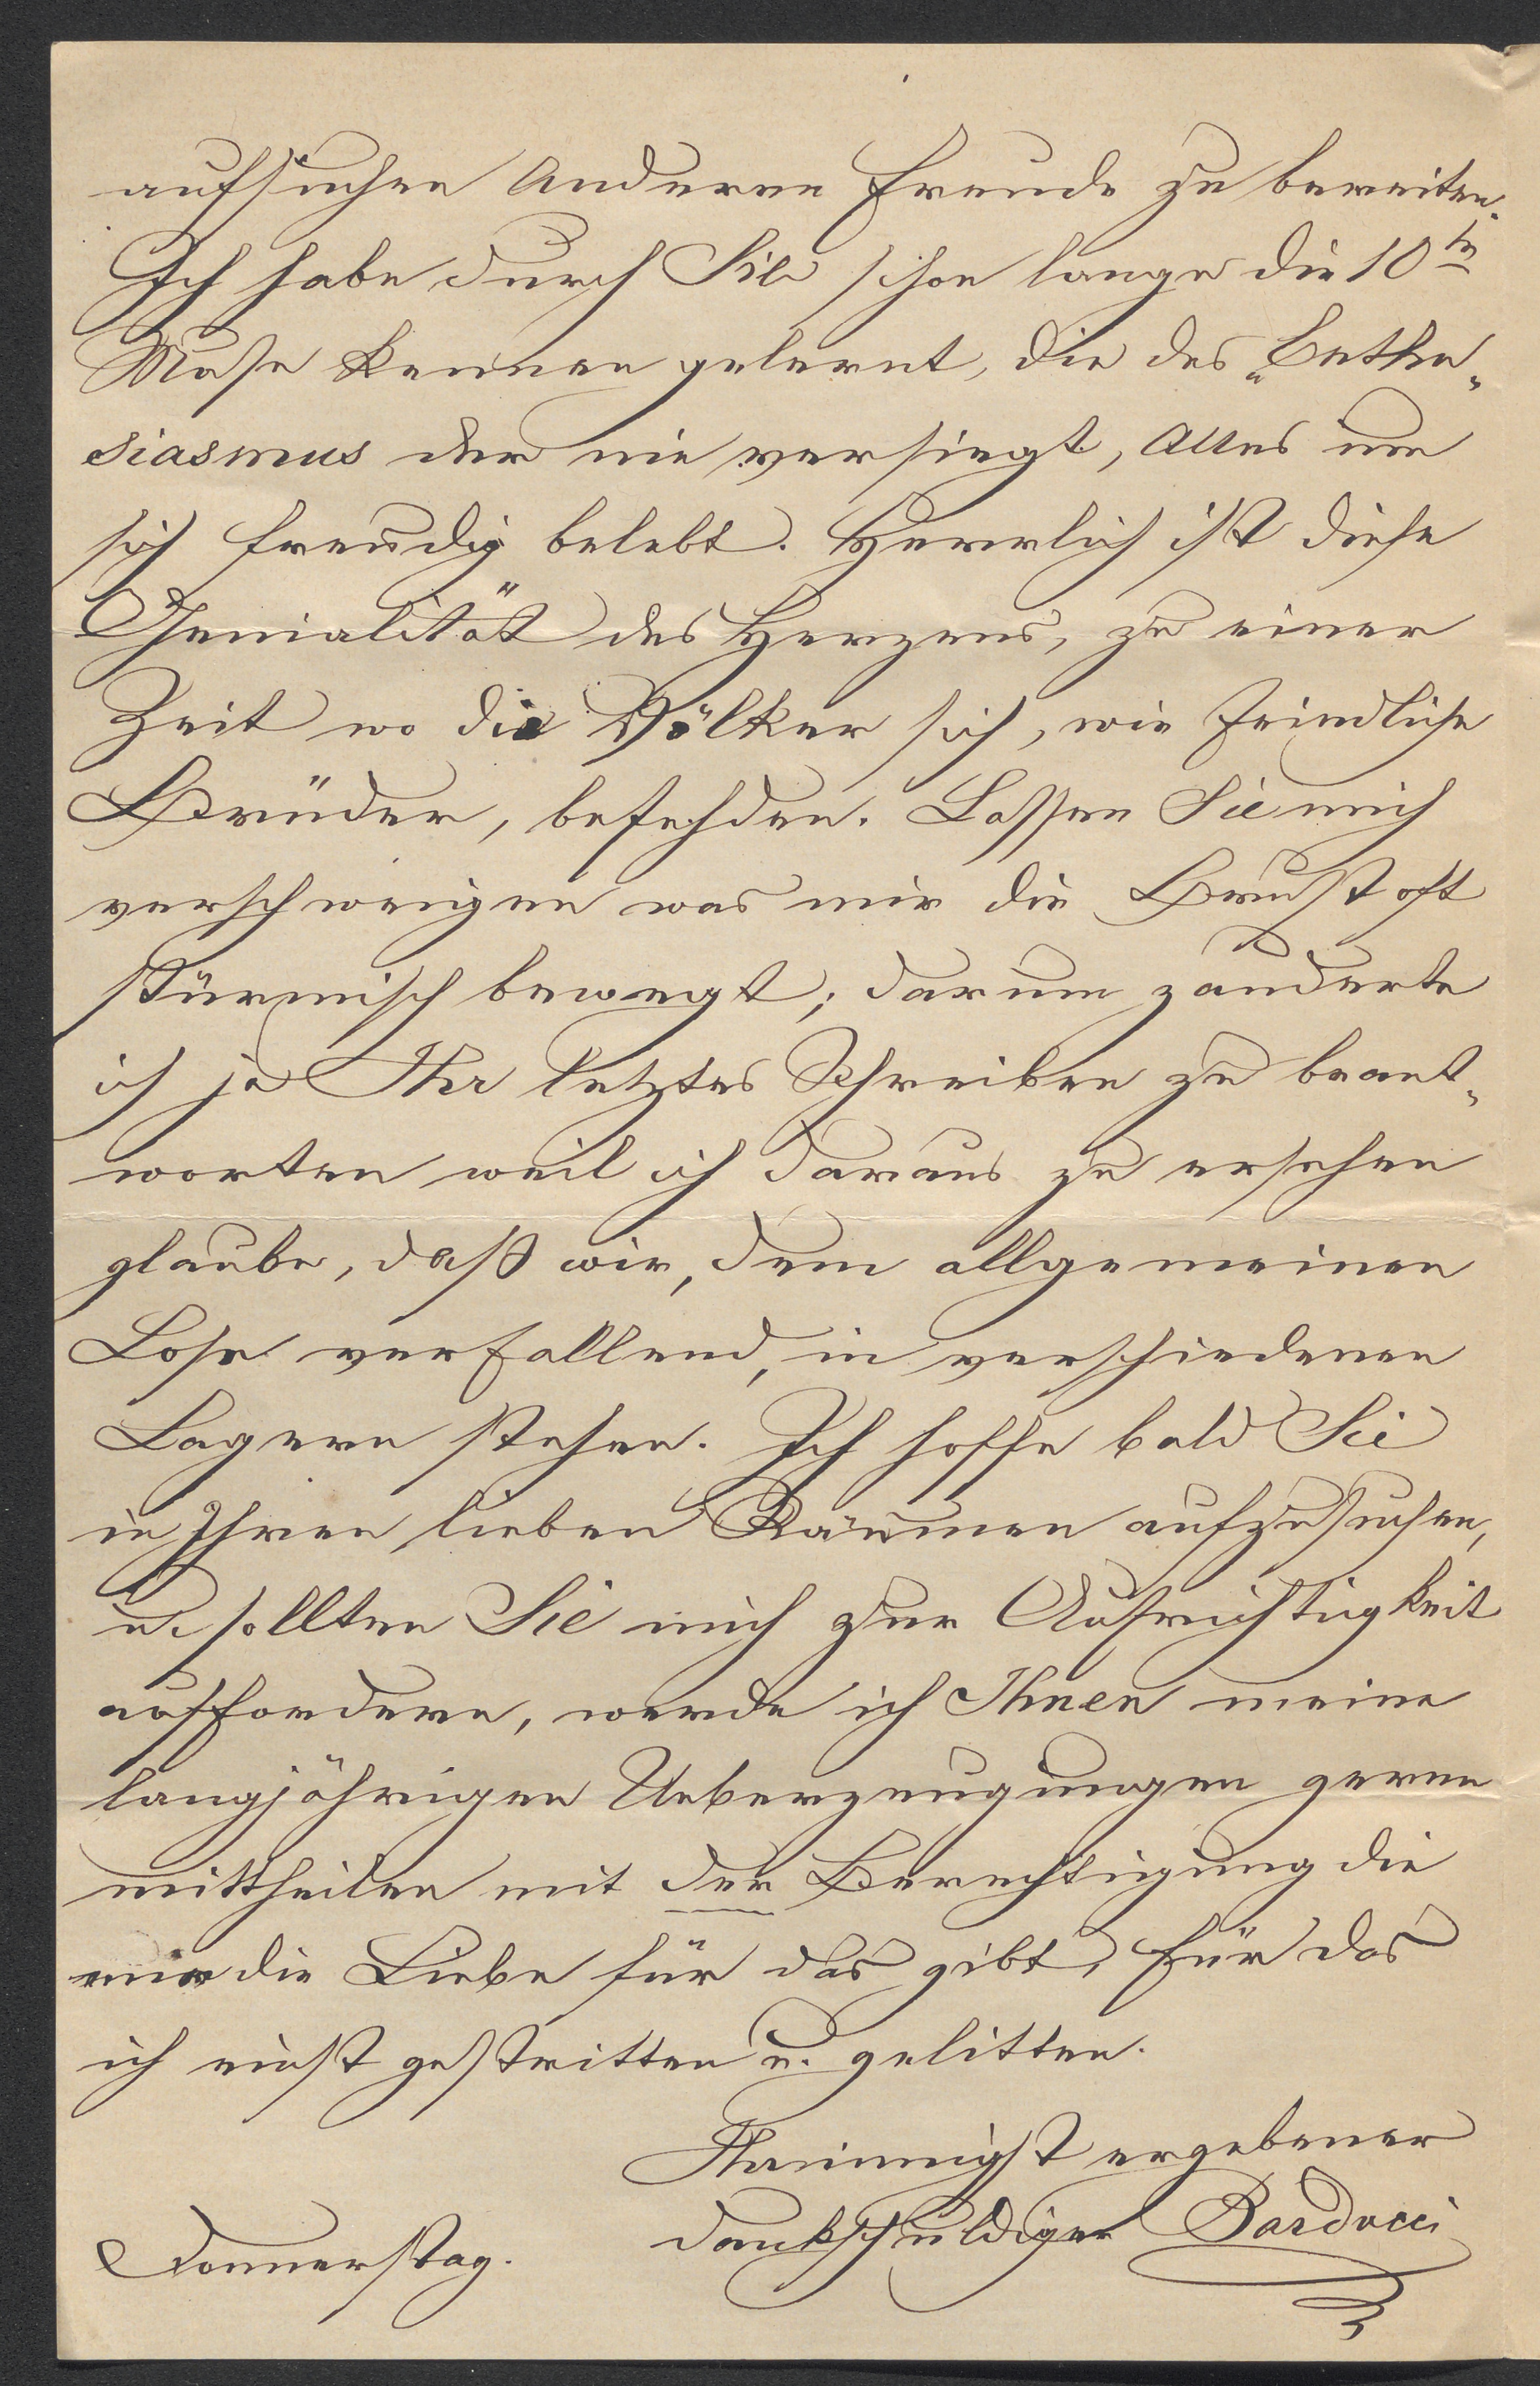 aufsuchen Anderen Freude zu bereiten.
Ich habe durch Sie schon lange die 10te
Muse kennen gelernt, die des „Enthu„
siasmus der nie versiegt, Alles um
sich freudig belebt. Herrlich ist diese
Genialität des Herzens, zu einer
Zeit wo die Völker sich, wie feindliche
Brüder, befehden. Lassen Sie mich
verschweigen was mir die Brust oft
stürmisch bewegt; darum zauderte
ich ja Ihr letztes Schreiben zu beant„
worten weil ich daraus zu ersehen
glaube, daß wir, dem allgemeinen
Lose verfallend, in verschiedenen
Lagern stehen. Ich hoffe bald Sie
in Ihren lieben Räumen aufzusuchen,
u. sollten Sie mich zur Aufrichtigkeit
auffordern, werde ich Ihnen meine
langjährigen Ueberzeugungen gerne
mittheilen mit der Berechtigung die
mir die Liebe für das gibt, für das
ich einst gestritten u. gelitten.
Ihr innigst ergebener
dankschuldiger Barducci
Donnerstag.